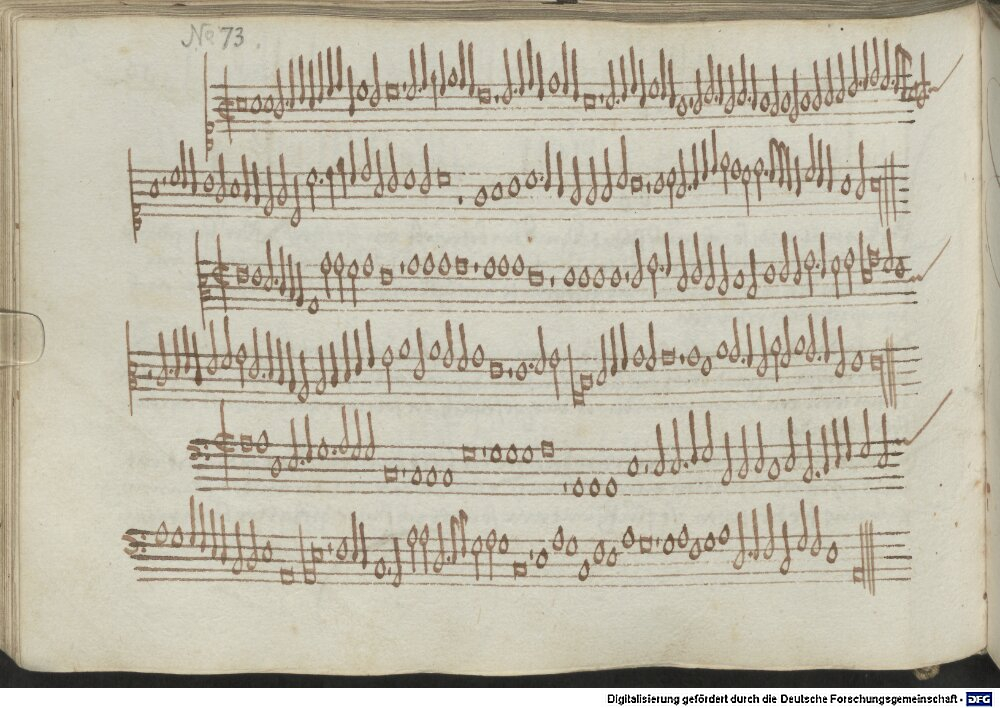 No 73.
Digitalisierung gefördert durch die Deutsche Forschungsgemeinschaft - DFG